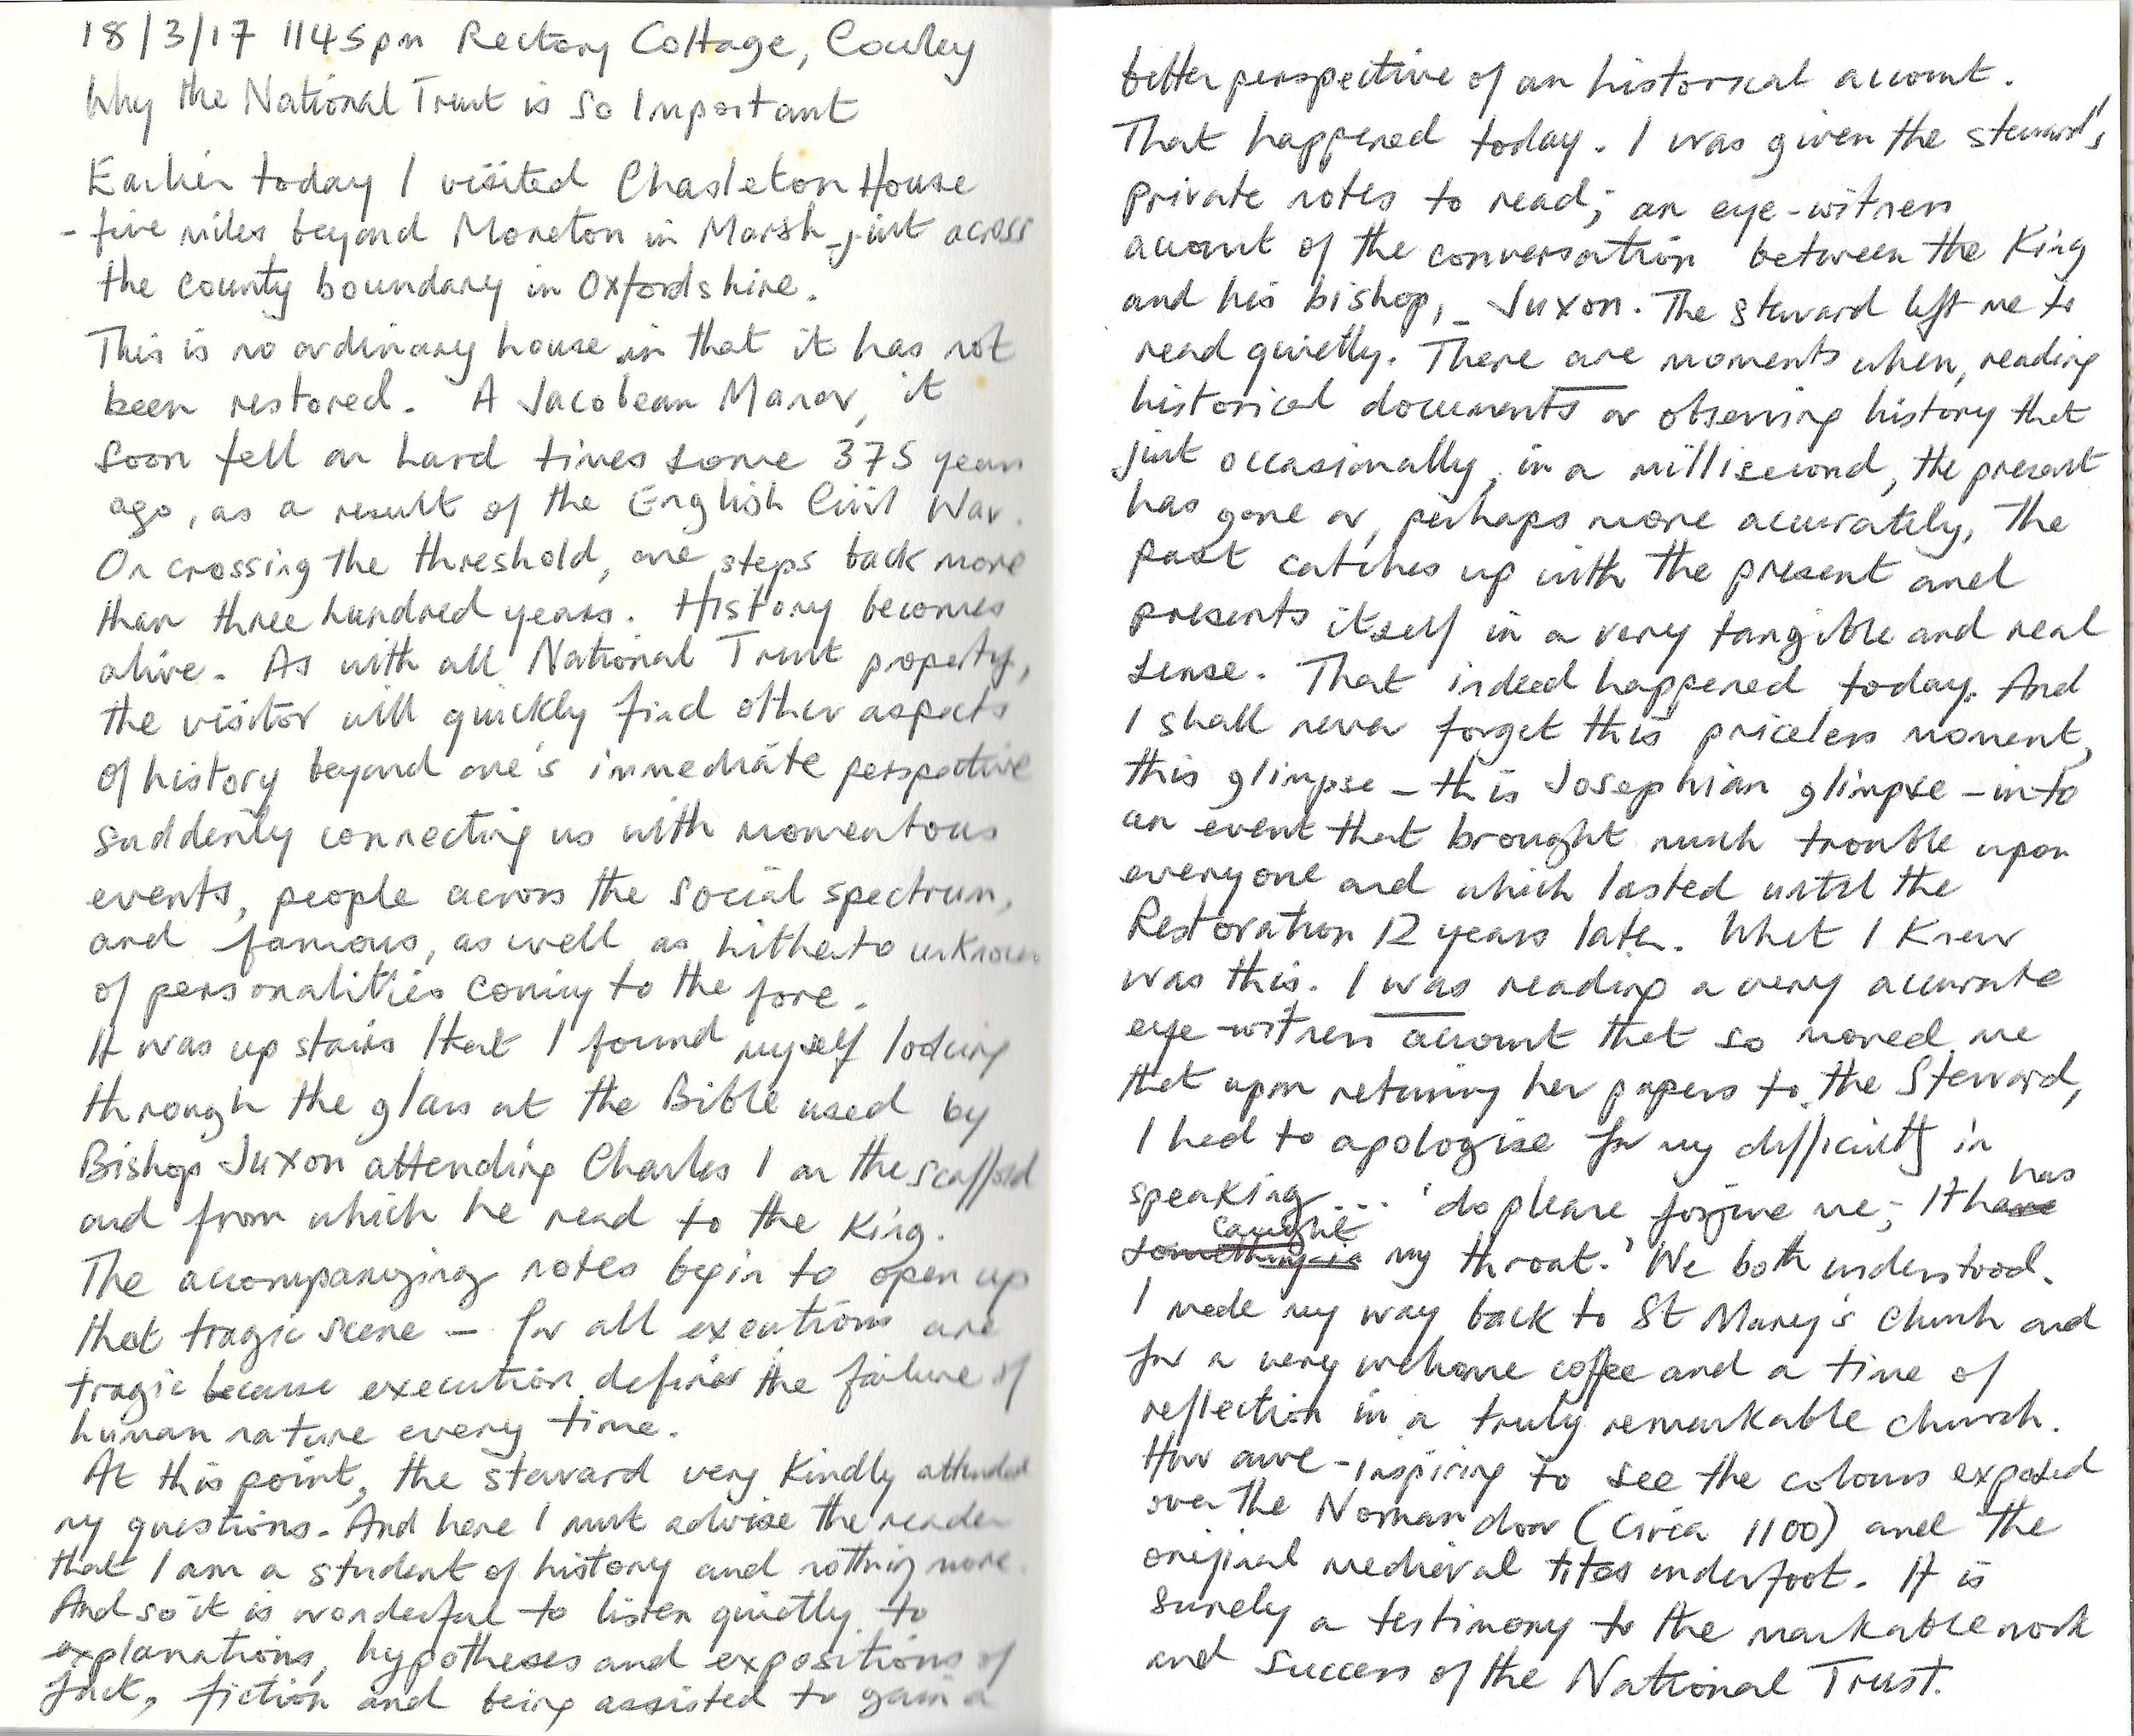 18/3/17 1145pm Rectory Cottage, Cowley
Why the National Trust is so Important
Earlier today I visited Chasleton House
- five miles beyond Moreton in Marsh - just across
the county boundary in Oxfordshire.
This is no ordinary house in that it has not
been restored. A Jacobean Manor, it
soon fell on hard times some 375 years
ago, as a result of the English Civil War.
On crossing the threshold, one steps back more
than three hundred years. History becomes
alive. As with all National Trust property,
the visitor will quickly find other aspects
of history beyond one's immediate perspective
suddenly connecting us with momentous
events, people across the social spectrum,
and famous, as well as hitherto unknown
of personalities coming to the fore.
It was up stairs that I found myself looking
through the glass at the Bible used by
Bishop Juxon attending Charles I on the scaffold
and from which he read to the King.
The accompanying notes begin to open up
that tragic scene - for all executions are
tragic because execution defines the failure of
human nature every time.
At this point, the steward very kindly attended
my questions. And here I must advise the reader
that I am a student of history and nothing more.
And so it is wonderful to listen quietly to
explanations, hypotheses and expositions of
fact, fiction and being assisted to gain a
better perspective of an historical account.
That happened today. I was given the steward's
private notes to read; an eye-witness
account of the conversation between the King
and his bishop, - Juxon. The steward left me to
read quietly. There are moments when, reading
historical documents or observing history that
just occasionally, in a millisecond, the present
has gone or, perhaps more accurately, the
past catches up with the present and
presents itself in a very tangible and real
sense. That indeed happened today. And
I shall never forget this priceless moment,
this glimpse - this Josephian glimpse - into
an event that brought much trouble upon
everyone and which lasted until the
Restoration 12 years later. What I knew
was this. I was reading a very accurate
eye-witness account that so moved me
that upon returning her papers to the Steward,
I had to apologise for my difficulty in
speaking... 'do please forgive me; It have has
something is caught my throat.' We both understood.
I made my way back to St Mary's Church and
for a very welcome coffee and a time of
reflection in a truly remarkable church.
How awe-inspiring to see the colours exposed
over the Norman door (Circa 1100) and the
original medieval tiles underfoot. It is
surely a testimony to the markable work
and success of the National Trust.